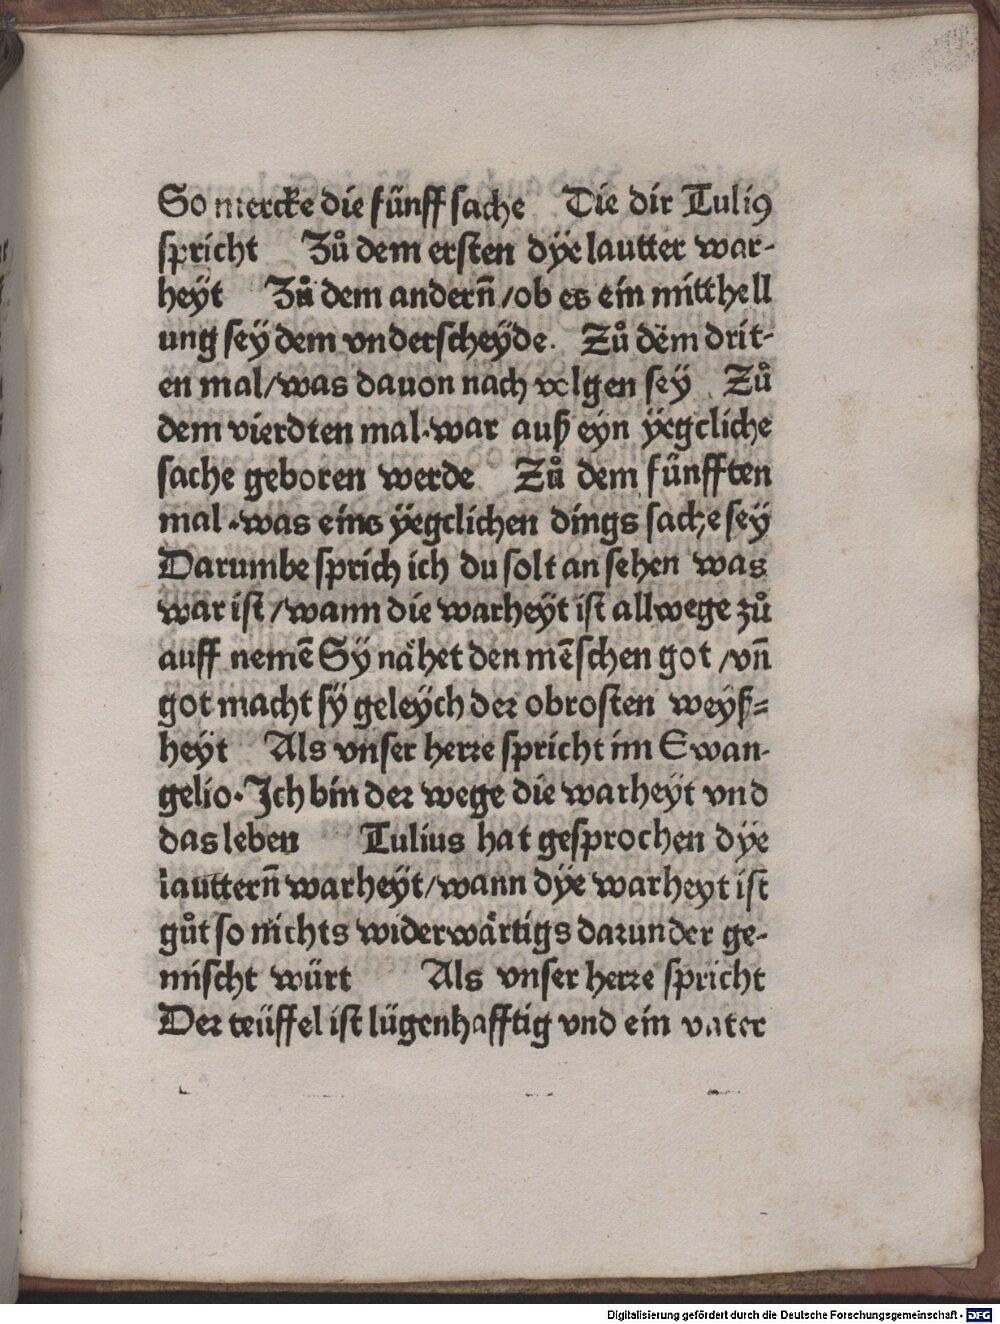 So mercke die fünff sache Die dir Tuliꝰ
spricht Zů dem ersten dÿe lautter war-
heÿt Zů dem andern̄ /ob es ein mitthell
ung seÿ dem vnderscheÿde. Zů dëm drit-
en mal/was dauon nach volgen seÿ Zů
dem vierdten mal·war auß eÿn ÿegcliche
sache geboren werde Zů dem fünfften
mal·was eins ÿegclichen dings sache seÿ
Darumbe sprich ich du solt an sehen was
war ist/wann die warheÿt ist allwege zů
auff nemē Sÿ nåhet den mēschen got /vn̄
got macht sÿ geleÿch der obrosten weÿß=
heÿt Als vnser herre spricht im Ewan-
gelio·Ich bin der wege die warheÿt vnd
das leben Tulius hat gesprochen dÿe
lauttern̄ warheÿt/wann dÿe warheyt ist
gůt so nichts widerwårtigs darunder ge-
mischt würt Als vnser herre spricht
Der teüffel ist lügenhafftig vnd ein vater
Digitalisierung gefördert durch die Deutsche Forschungsgemeinschaft - DFG